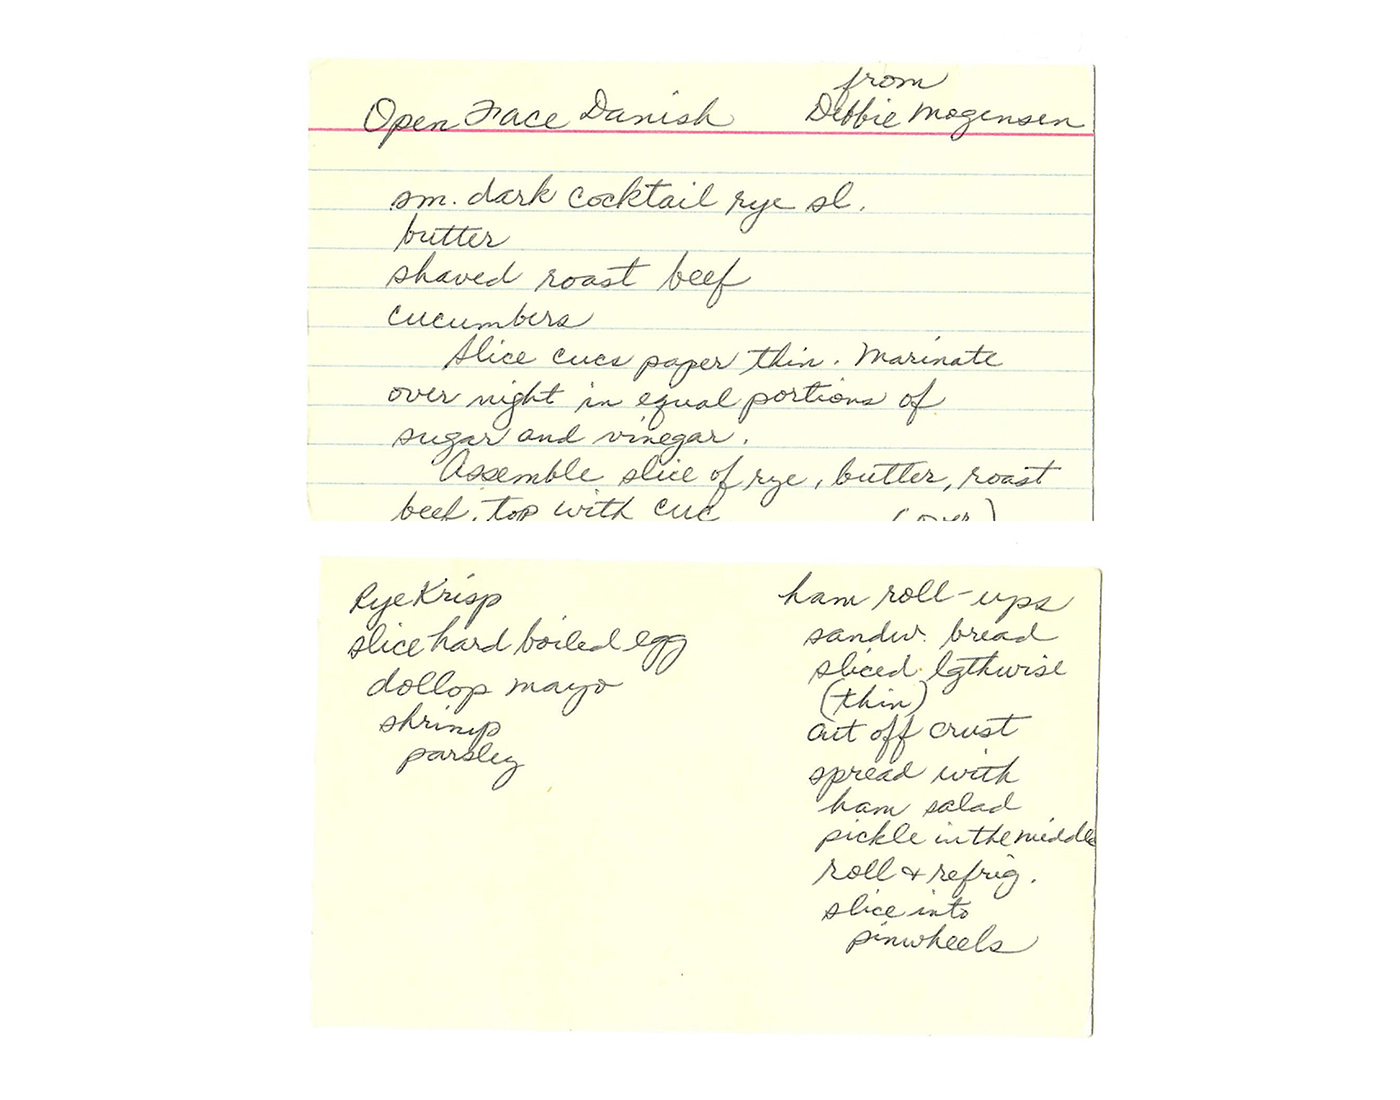 from
Open Face Danish Debbie Mogensen
sm. dark cocktail rye sl.
butter
shaved roast beef
cucumbers
Slice cucs paper thin. Marinate
over night in equal portions of
sugar and vinegar.
Assemble slice of rye, butter, roast
beef, top with cuc (over)
Rye Krisp
slice hard boiled egg
dollop mayo
shrimp
parsley
ham roll-ups
sandw. bread
sliced lgthwise
(thin)
cut off crust
spread with
ham salad
pickle in the middle
roll & refrig.
slice into
pinwheels